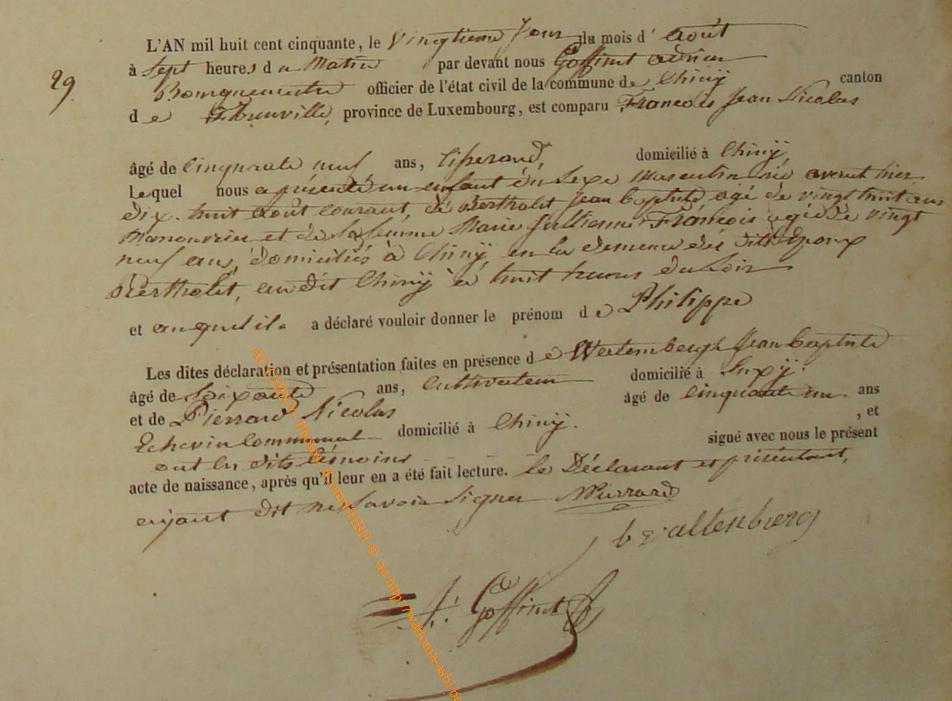 29.
L'AN mil huit cent cinquante, le vingtieme jour du mois d' août
à sept heures du Matin par devant nous Goffinet adrien
Bourguemestre officier de l'état civil de la commune de Chinÿ canton
de Florenville, province de Luxembourg, est comparu Francois Jean Nicolas
âgé de cinquante neuf ans, tisserand, domicilié à Chinÿ
Lequel nous a présenté un enfant du sexe Masculin né avant hier
dix-huit août courant, de Bertholet Jean Baptiste agé de vingt huit ans
Manouvrier et de sa femme Marie Jullienne Francois agée de vingt
neuf ans, domiciliés à Chinÿ, en la demeure des dits Epoux
Bertholet, au dit Chinÿ à huit heures du soir
et auquel il a déclaré vouloir donner le prénom de Philippe
Les dites déclaration et présentation faites en présence de Jean Baptiste
âgé de soixante ans, cultivateur domicilié à Suxÿ.
et de Pierrard Nicolas âgé de cinquante un ans
Echevin Communal domicilié à Chinÿ. , et
ont les dits témoins signé avec nous le présent
acte de naissance, après qu'il leur en a été fait lecture. le Déclarant et présentant,
ayant dit ne savoir signer NPierrard
A. Goffinet